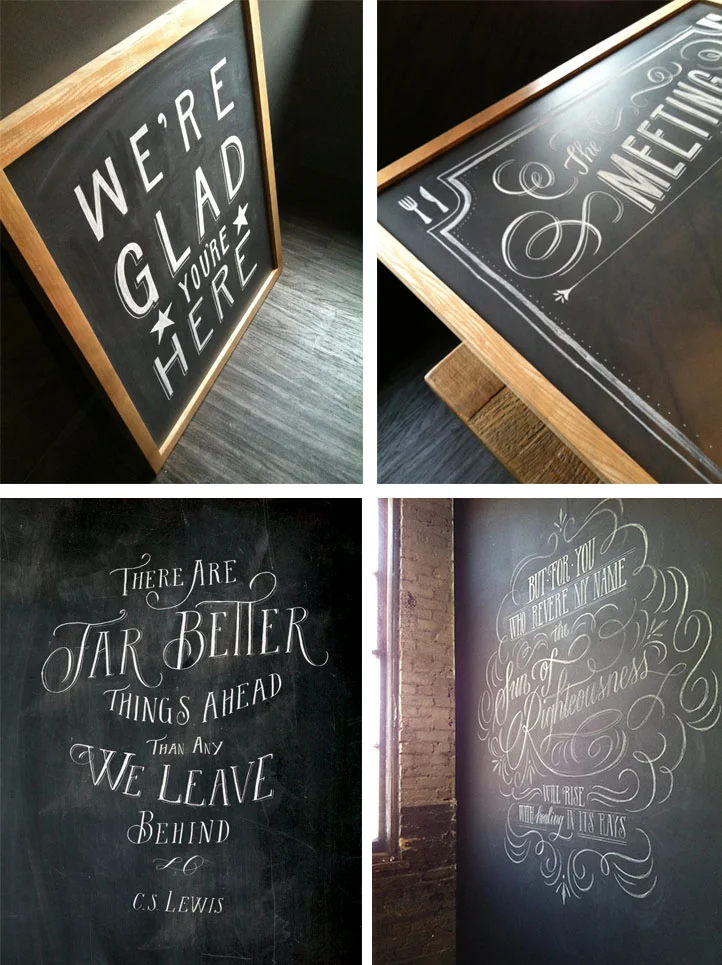 WE'RE
GLAD
YOU'RE
HERE
The
MEETING
THERE ARE
FAR BETTER
THINGS AHEAD
THAN ANY
WE LEAVE
BEHIND
C.S. LEWIS
BUT FOR YOU
WHO REVERE MY NAME
the
Sun of
Righteousness
WILL RISE
WITH healing IN ITS RAYS